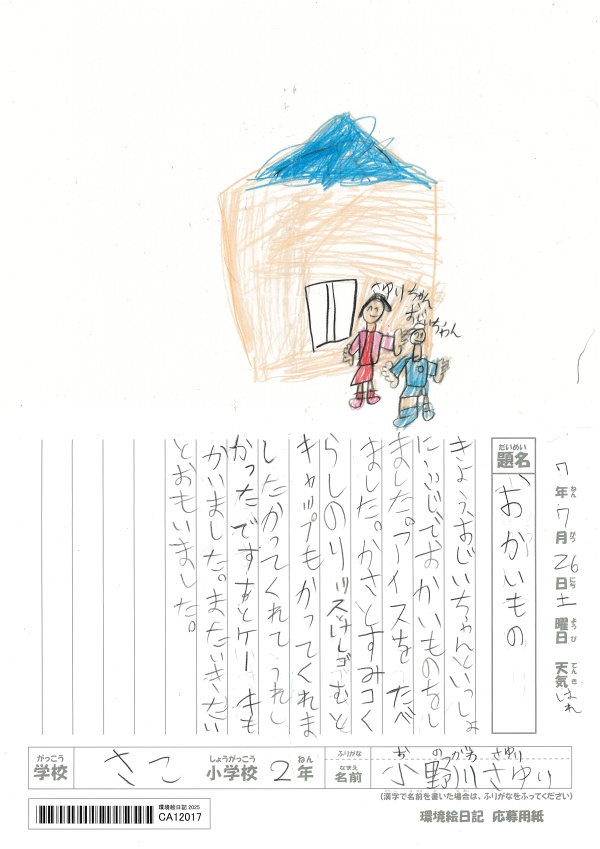 さゆりちゃん
おじいちゃん
7年7月26日土曜日 天気はれ
ねん がつ にち ようび てんき
だいめい
題名
おかいもの
きょうおじいちゃんといっしょ
にふじでおかいものをし
ました。アイスをたべ
ました。かさとすみコく
らしのリッスとけしゴむと
キャップもかってくれま
したかってくれてうれし
かったですあとケーキも
かいました。またいきたい
とおもいました。
がっこう
学校
さこ
しょうがっこう
小学校
2
ねん
年
ふりがな
おのがわ さゆり
なまえ
名前
小野川さゆり
(漢字で名前を書いた場合は、ふりがなをふってください)
環境絵日記2025
CA12017
環境絵日記 応募用紙